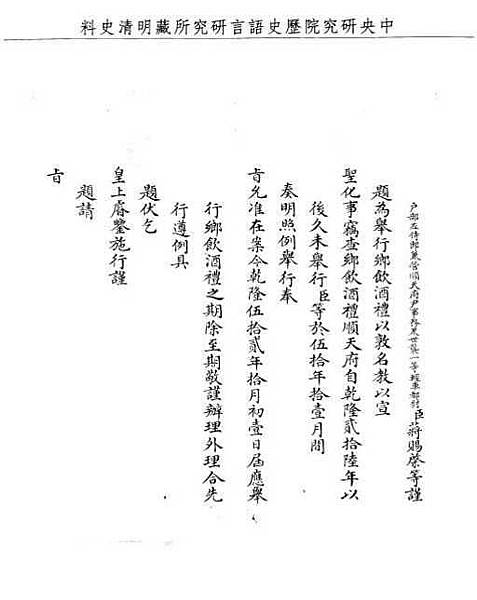 中央研究院歷史語言研究所藏明清史料
戶部左侍郎兼管順天府尹事務兼世襲一等輕車都尉臣蔣賜棨等謹
題為舉行鄉飲酒禮以敦名教以宣
聖化事竊查鄉飲酒禮順天府自乾隆貳拾陸年以
後久未舉行臣等於伍拾年拾壹月間
奏明照例舉行奉
旨允准在案今乾隆伍拾貳年拾月初壹日屆應舉
行鄉飲酒禮之期除至期敬謹辦理外理合先
行遵例具
題伏乞
皇上睿鑒施行謹
題請
旨